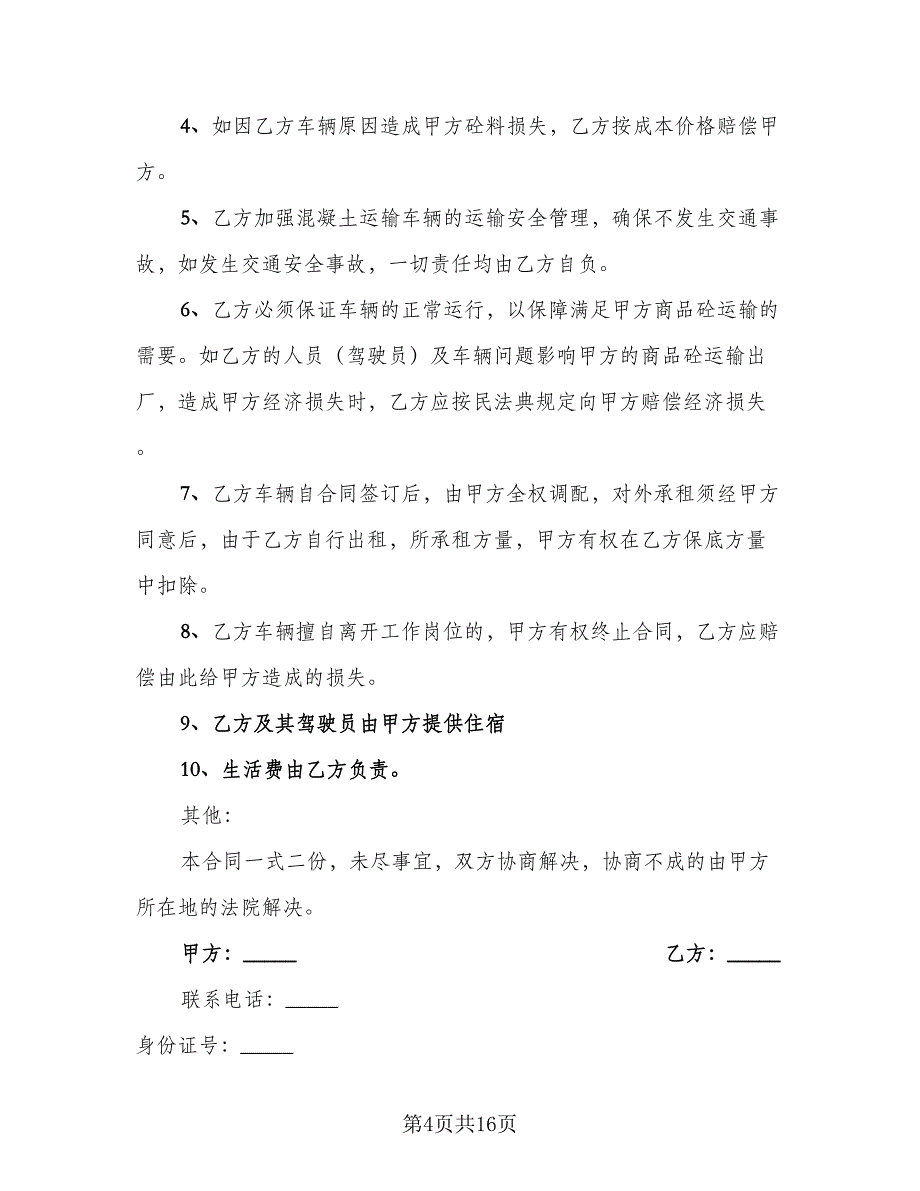 4、如因乙方车辆原因造成甲方砼料损失，乙方按成本价格赔偿甲
方。
5、乙方加强混凝土运输车辆的运输安全管理，确保不发生交通事
故，如发生交通安全事故，一切责任均由乙方自负。
6、乙方必须保证车辆的正常运行，以保障满足甲方商品砼运输的
需要。如乙方的人员（驾驶员）及车辆问题影响甲方的商品砼运输出
厂，造成甲方经济损失时，乙方应按民法典规定向甲方赔偿经济损失
。
7、乙方车辆自合同签订后，由甲方全权调配，对外承租须经甲方
同意后，由于乙方自行出租，所承租方量，甲方有权在乙方保底方量
中扣除。
8、乙方车辆擅自离开工作岗位的，甲方有权终止合同，乙方应赔
偿由此给甲方造成的损失。
9、乙方及其驾驶员由甲方提供住宿
10、生活费由乙方负责。
其他：
本合同一式二份，未尽事宜，双方协商解决，协商不成的由甲方
所在地的法院解决。
甲方：_____ 乙方：_____
联系电话：_____
身份证号：_____
第4页共16页